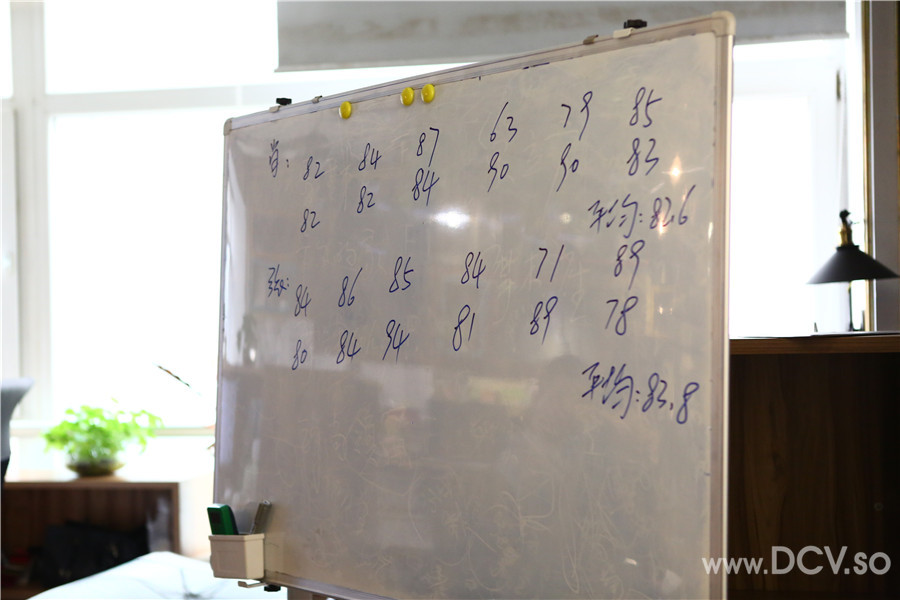 肖: 82 84 87 63 79 85
82 82 84 90 90 83
平均: 82.6
张: 84 86 85 84 71 89
80 84 94 81 89 78
平均: 83.8
www.DCV.so